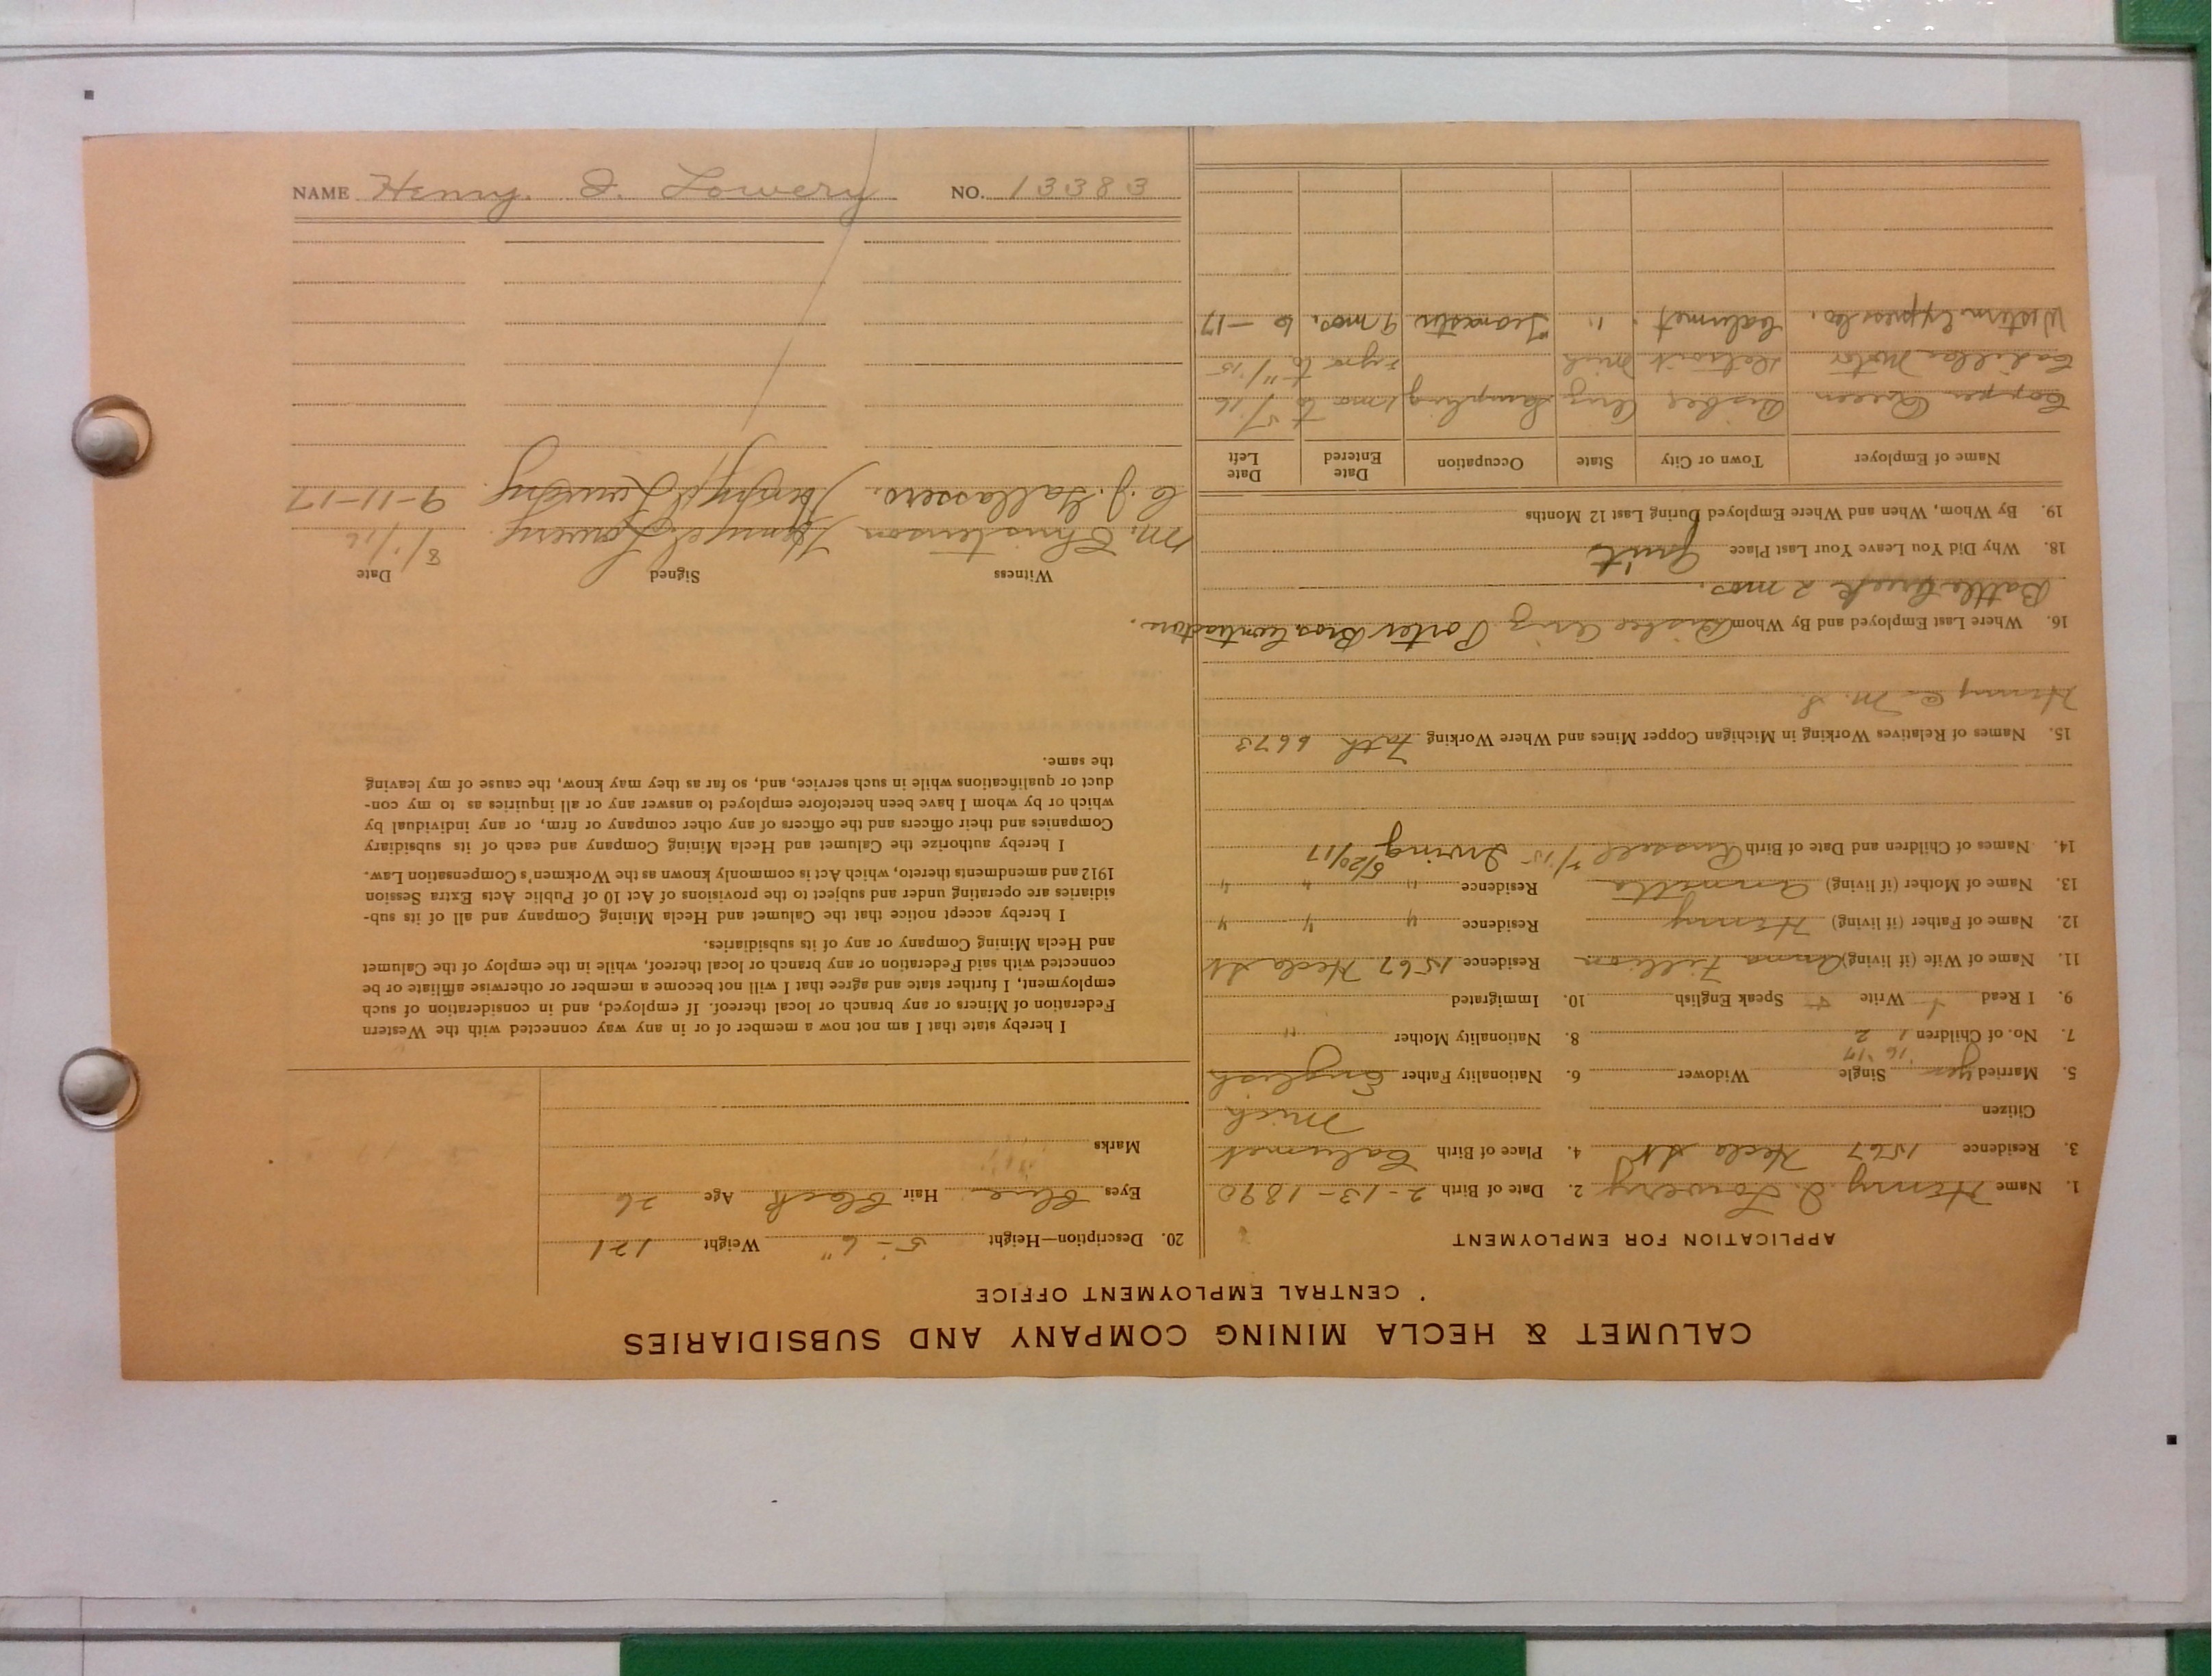 CALUMET & HECLA MINING COMPANY AND SUBSIDIARIES
CENTRAL EMPLOYMENT OFFICE
APPLICATION FOR EMPLOYMENT
1. Name Henry I. Lowery 2. Date of Birth 2-13-1890
3. Residence 1567 Hecla St 4. Place of Birth Calumet
Citizen Mich
5. Married yes Single Widower 6. Nationality Father English
'16 '17
7. No. of Children 1 2 8. Nationality Mother "
9. I Read Write Speak English 10. Immigrated
11. Name of Wife (if living) Anna Residence 1567 Hecla St
12. Name of Father (if living) Henry Residence " " "
13. Name of Mother (if living) Residence " " "
14. Names of Children and Date of Birth Russell /15 Irving 5/20/17
15. Names of Relatives Working in Michigan Copper Mines and Where Working Fath 6673
Henry M.
16. Where Last Employed and By Whom Bisbee Ariz Porter Bros. Contractors.
Battle Creek 2 mos.
18. Why Did You Leave Your Last Place Quit
19. By Whom, When and Where Employed During Last 12 Months
Name of Employer Town or City State Occupation Date Entered Date Left
Copper Queen Bisbee Ariz Sampling 1 mo to 5/16
Cadillac Motor Detroit Mich to 11/15
Western Express Co. Calumet. " Teamster 9 mos. to -17
20. Description—Height 5-6" Weight 121
Eyes Blue Hair Black Age 26
Marks
I hereby state that I am not now a member of or in any way connected with the Western
Federation of Miners or any branch or local thereof. If employed, and in consideration of such
employment, I further state and agree that I will not become a member or otherwise affiliate or be
connected with said Federation or any branch or local thereof, while in the employ of the Calumet
and Hecla Mining Company or any of its subsidiaries.
I hereby accept notice that the Calumet and Hecla Mining Company and all of its sub-
sidiaries are operating under and subject to the provisions of Act 10 of Public Acts Extra Session
1912 and amendments thereto, which Act is commonly known as the Workmen's Compensation Law.
I hereby authorize the Calumet and Hecla Mining Company and each of its subsidiary
Companies and their officers and the officers of any other company or firm, or any individual by
which or by whom I have been heretofore employed to answer any or all inquiries as to my con-
duct or qualifications while in such service, and, so far as they may know, the cause of my leaving
the same.
Witness Signed Date
M. Christenson Henry I Lowery. 8/1/16
C. J. Gallassero. Henry I Lowery. 9-11-17
NAME Henry. I. Lowery NO. 13383